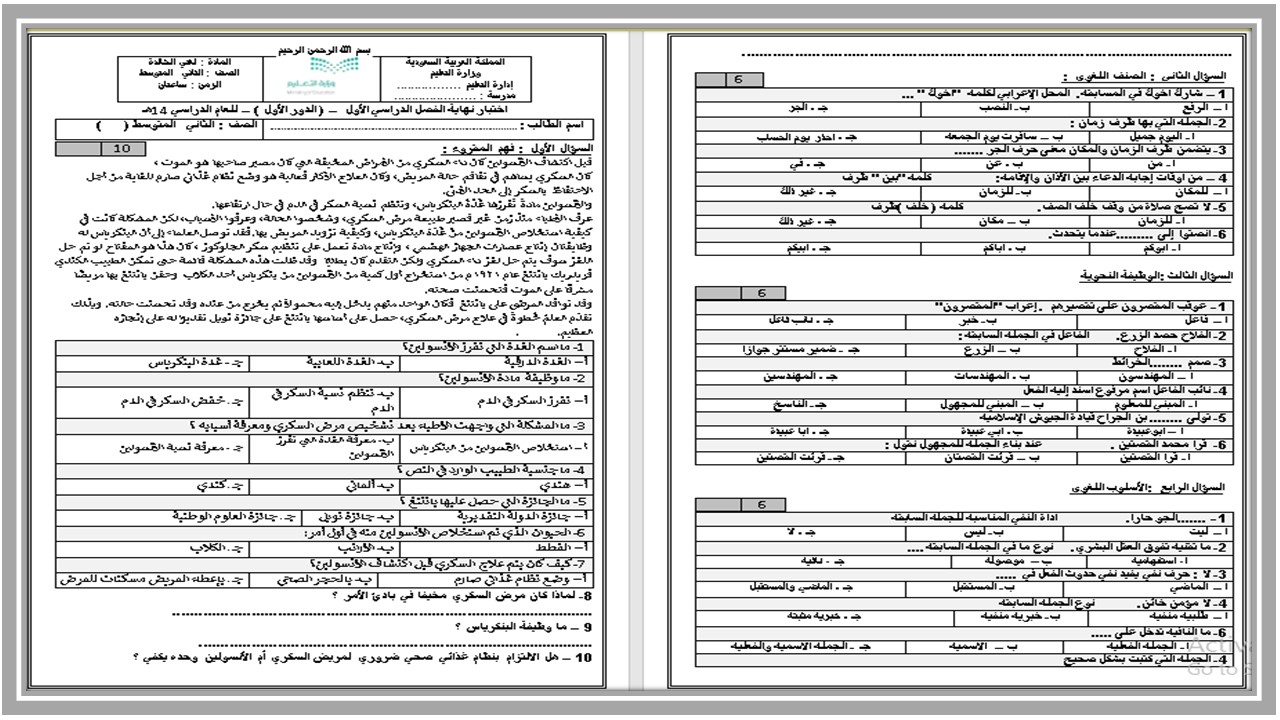 بسم الله الرحمن الرحيم
المملكة العربية السعودية
وزارة التعليم
إدارة التعليم ................
مدرسة : ..................
وزارة التعليم
Ministry of Education
المادة : لغتي الخالدة
الصف : الثاني المتوسط
الزمن : ساعتان
اختبار نهاية الفصل الدراسي الأول – (الدور الأول ) – للعام الدراسي 14هـ
اسم الطالب : ........................ الصف : الثاني المتوسط ( )
السؤال الأول : فهم المقروء : 10
قبل اكتشاف الأنسولين كان داء السكري من الأمراض المخيفة التي كان مصير صاحبها هو الموت،
كان السكري يساهم في تفاقم حالة المريض، وكان العلاج الأكثر فعالية هو وضع نظام غذائي صارم للغاية من أجل
الاحتفاظ بالسكر إلى الحد الأدنى.
والأنسولين مادة تفرزها غدة البنكرياس، وتنظم نسبة السكر في الدم في حال ارتفاعها.
عرف الأطباء منذ زمن غير قصير طبيعة مرض السكري، وشخصوا الحالة، وعرفوا الأسباب، لكن المشكلة كانت في
كيفية استخلاص الأنسولين من غدة البنكرياس، وكيفية تزويد المريض بها، فقد توصل العلماء إلى أن البنكرياس له
وظيفتان إنتاج عصارات الجهاز الهضمي ، وإنتاج مادة تعمل على تنظيم سكر الجلوكوز ، كان هذا هو المفتاح لو تم حل
اللغز سوف يتم حل لغز داء السكري ولكن التقدم كان بطيئا وقد ظلت هذه المشكلة قائمة حتى تمكن الطبيب الكندي
فريدريك بانتنغ عام ١٩٢١م من استخراج أول كمية من الأنسولين من بنكرياس أحد الكلاب وحقن بانتنغ بها مريضا
مشرفا على الموت فتحسنت صحته.
وقد توافد المرضى على بانتنغ فكان الواحد منهم يدخل إليه محمولا ثم يخرج من عنده وقد تحسنت حالته. وبذلك
تقدم العلم خطوة في علاج مرض السكري، حصل على أساسها بانتنغ على جائزة نوبل تقديرا له على إنجازه
العظيم.
1- ما اسم الغدة التي تفرز الأنسولين؟
أ- الغدة الدرقية ب- الغدة اللعابية جـ - غدة البنكرياس
2- ما وظيفة مادة الأنسولين؟
أ- تفرز السكر في الدم ب- تنظم نسبة السكر في الدم جـ. خفض السكر في الدم
3- ما المشكلة التي واجهت الأطباء بعد تشخيص مرض السكري ومعرفة أسبابه ؟
أ- استخلاص الأنسولين من البنكرياس ب. معرفة الغدة التي تفرز الأنسولين جـ - معرفة نسبة الأنسولين
4- ما جنسية الطبيب الوارد في النص ؟
أ- هندي ب- ألماني جـ. كندي
5- ما الجائزة التي حصل عليها بانتنغ ؟
أ- جائزة الدولة التقديرية ب- جائزة نوبل جـ. جائزة العلوم الوطنية
6- الحيوان الذي تم استخلاص الأنسولين منه في أول أمر:
أ- القطط ب- الأرانب جـ. الكلاب
7- كيف كان يتم علاج السكري قبل اكتشاف الأنسولين؟
أ- وضع نظام غذائي صارم ب- بالحجر الصحي جـ. بإعطاء المريض مسكنات للمرض
8- لماذا كان مرض السكري مخيفا في بادئ الأمر ؟
................................
9 – ما وظيفة البنكرياس ؟
................................
10 – هل الالتزام بنظام غذائي صحي ضروري لمريض السكري أم الأنسولين وحده يكفي ؟
................................
السؤال الثاني : الصنف اللغوي : 6
1 – شارك أخوك في المسابقة. المحل الإعرابي لكلمة "أخوك" ...
أ – الرفع ب- النصب جـ - الجر
2- الجملة التي بها ظرف زمان :
أ- اليوم جميل ب – سافرت يوم الجمعة جـ - احذر يوم الحساب
3- يتضمن ظرف الزمان والمكان معنى حرف الجر .......
أ - من ب - عن جـ - في
4 – من أوقات إجابة الدعاء بين الأذان والإقامة: كلمة "بين" ظرف
أ – للمكان ب- للزمان جـ - غير ذلك
5- لا تصح صلاة من وقف خلف الصف. كلمة ( خلف )ظرف
أ- للزمان ب – مكان جـ - غير ذلك
6- انصتوا إلى .........عندما يتحدث.
أ- أبوكم ب . أباكم جـ - أبيكم
السؤال الثالث :الوظيفة النحوية
6
1- عوقب المقصرون على تقصيرهم . إعراب "المقصرون"
أ – فاعل ب- خبر جـ - نائب فاعل
2- الفلاح حصد الزرع. الفاعل في الجملة السابقة :
أ- الفلاح ب – الزرع جـ – ضمير مستتر جوازا
3- صمم ........الخرائط
أ – المهندسون ب . المهندسات جـ . المهندسين
4- نائب الفاعل اسم مرفوع أسند إليه الفعل
أ- المبني للمعلوم ب – المبني للمجهول جـ - الناسخ
5- تولى ........بن الجراح قيادة الجيوش الإسلامية
أ – أبو عبيدة ب . أبي عبيدة جـ . أبا عبيدة
6- قرأ محمد القصتين . عند بناء الجملة للمجهول نقول :
أ- قرأ القصتين ب – قرئت القصتان جـ - قرئت القصتين
السؤال الرابع :الأسلوب اللغوي
6
1- .......الجو حارا. أداة النفي المناسبة للجملة السابقة
أ – ليت ب- ليس جـ . لا
2- ما تقنية تفوق العقل البشري. نوع ما في الجملة السابقة....
أ- استفهامية ب – موصولة جـ - نافية
3- لا : حرف نفي يفيد نفي حدوث الفعل في .....
أ – الماضي ب- المستقبل جـ - الماضي والمستقبل
4- لا مؤمن خائن. نوع الجملة السابقة
أ – طلبية منفية ب- خبرية منفية جـ . خبرية مثبتة
6- ما النافية تدخل على .....
أ - الجملة الفعلية ب – الاسمية جـ - الجملة الاسمية والفعلية
4- الجملة التي كتبت بشكل صحيح
Activa
Go to S